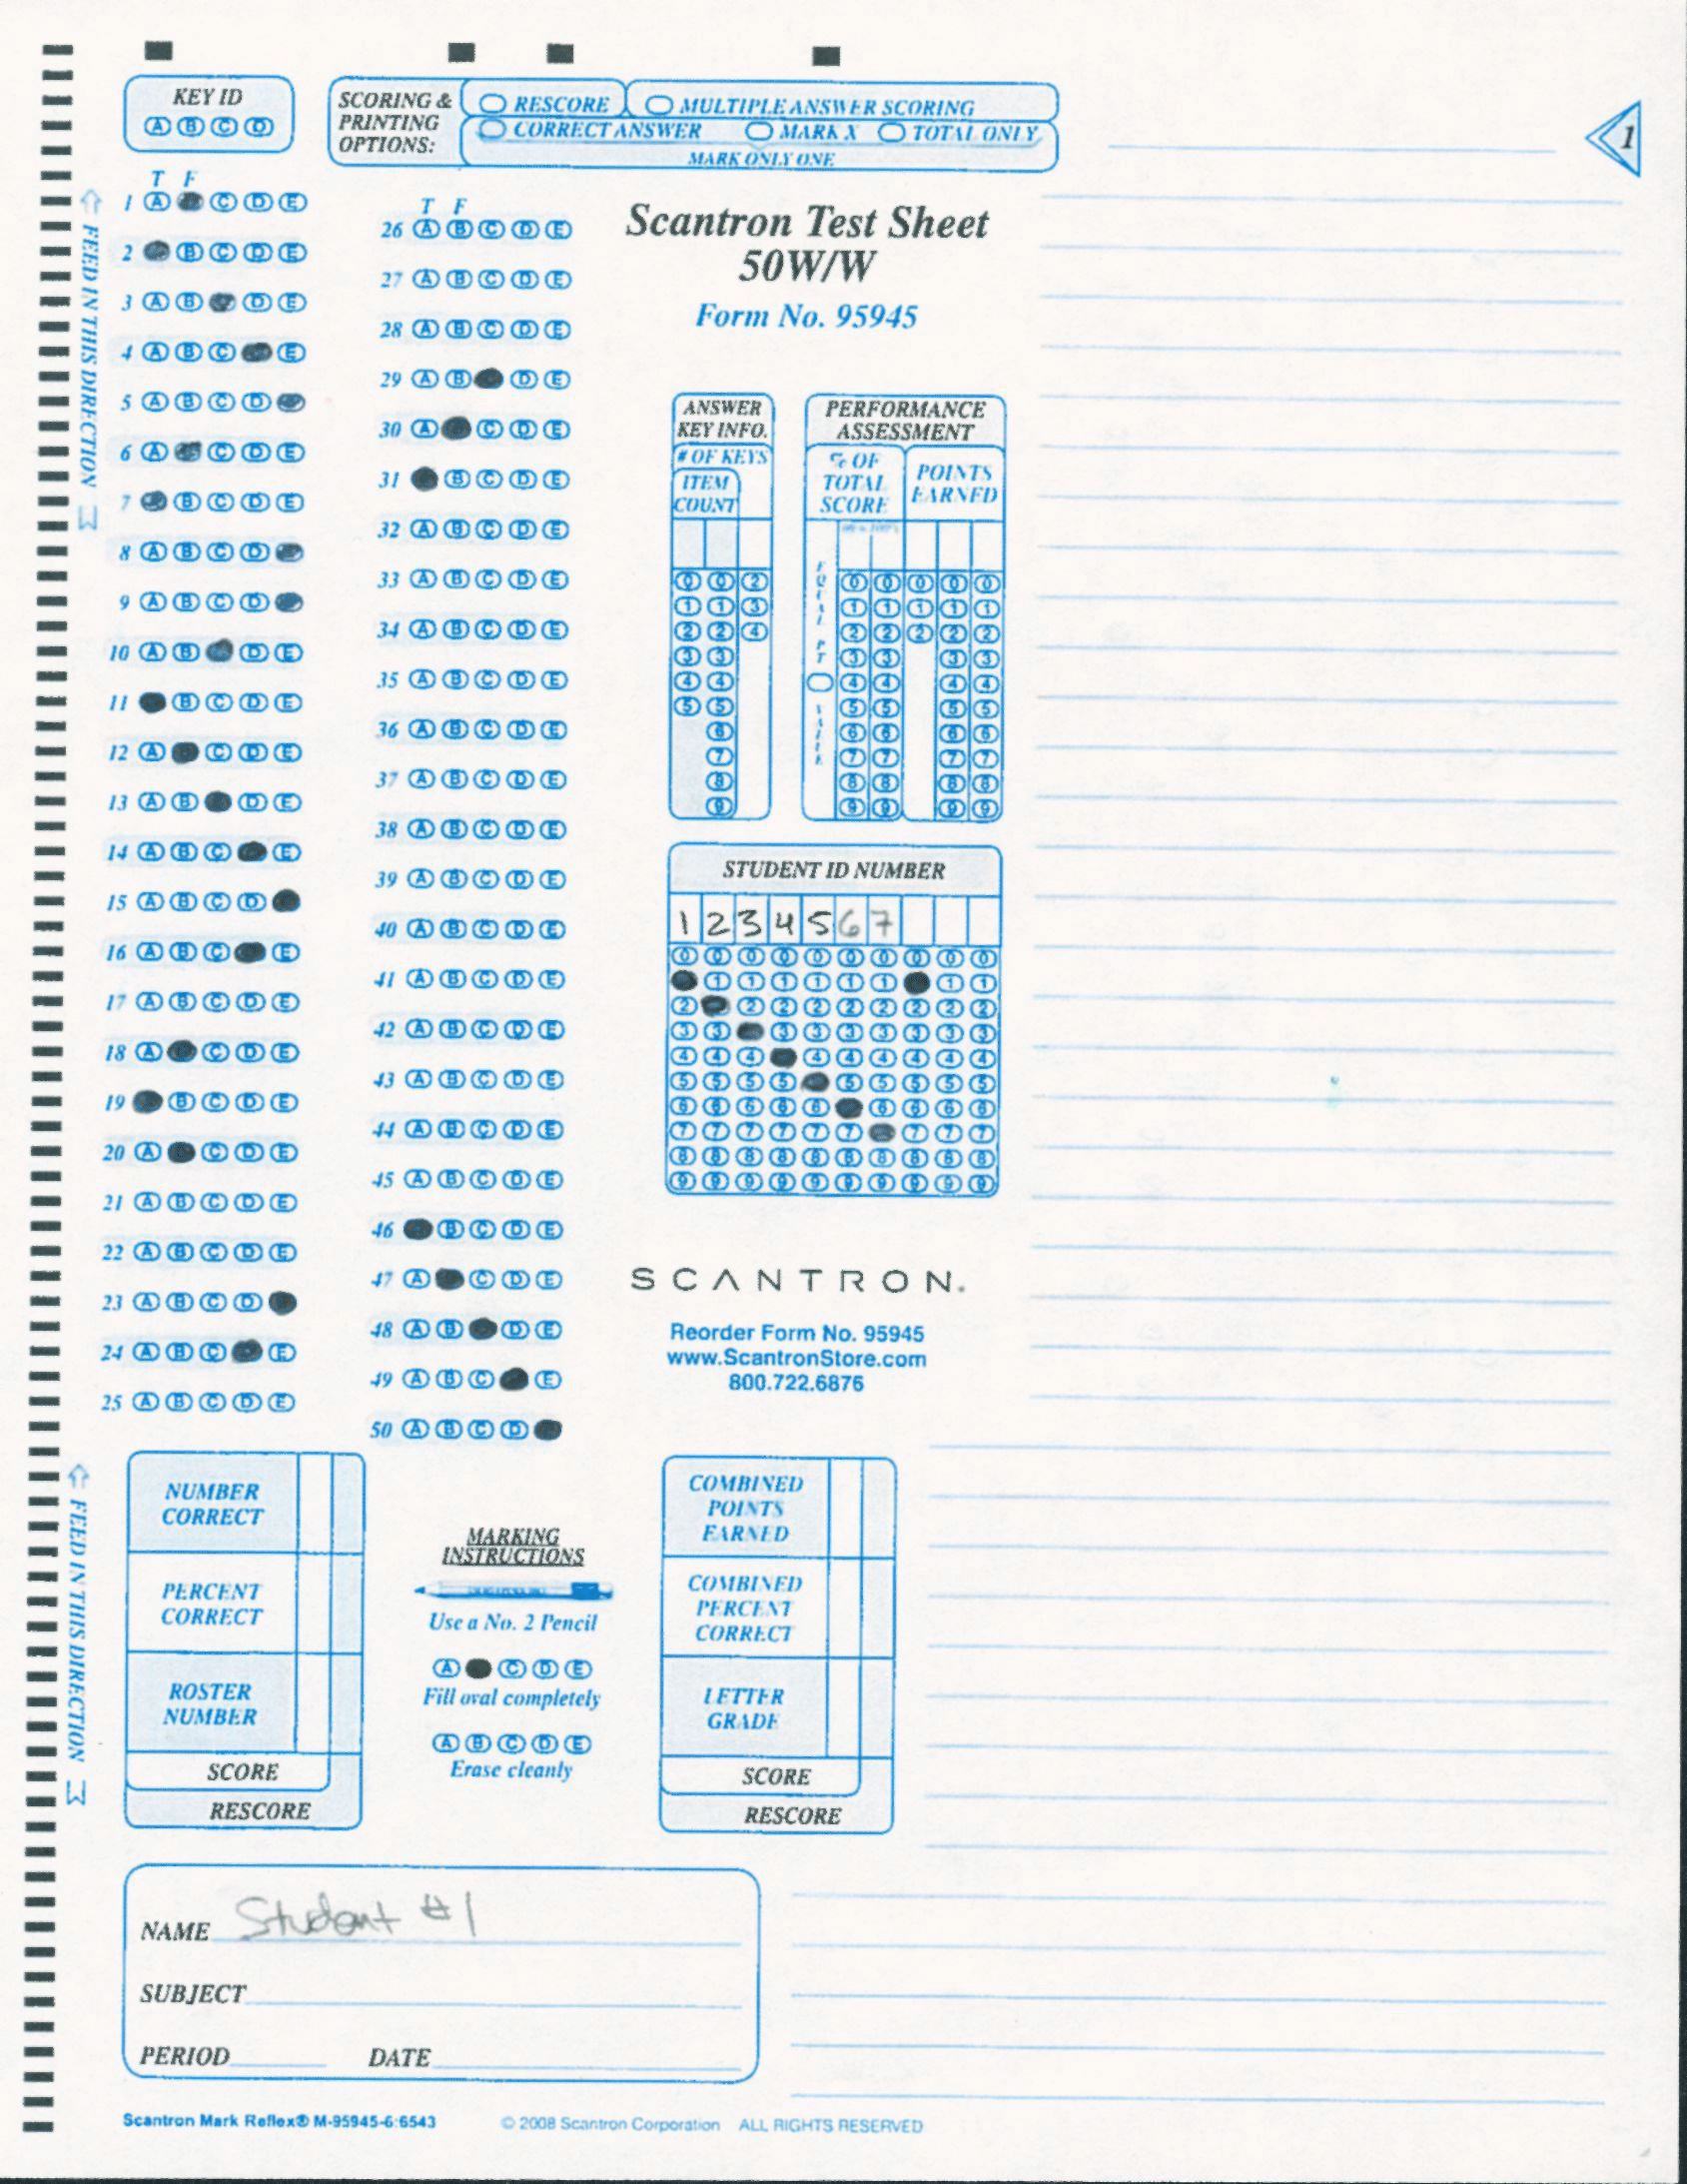 KEY ID
A B C D
SCORING &
PRINTING
OPTIONS:
RESCORE
MULTIPLE ANSWER SCORING
CORRECT ANSWER
MARK X
TOTAL ONLY
MARK ONLY ONE
1
FEED IN THIS DIRECTION
T F
1 A C D E
2 B C D E
3 A B D E
4 A B C E
5 A B C D
6 A C D E
7 B C D E
8 A B C D
9 A B C D
10 A B D E
11 B C D E
12 A C D E
13 A B D E
14 A B C E
15 A B C D
16 A B C E
17 A B C D E
18 A C D E
19 B C D E
20 A C D E
21 A B C D E
22 A B C D E
23 A B C D
24 A B C E
25 A B C D E
T F
26 A B C D E
27 A B C D E
28 A B C D E
29 A B D E
30 A C D E
31 B C D E
32 A B C D E
33 A B C D E
34 A B C D E
35 A B C D E
36 A B C D E
37 A B C D E
38 A B C D E
39 A B C D E
40 A B C D E
41 A B C D E
42 A B C D E
43 A B C D E
44 A B C D E
45 A B C D E
46 B C D E
47 A C D E
48 A B D E
49 A B C E
50 A B C D
Scantron Test Sheet
50W/W
Form No. 95945
ANSWER
KEY INFO.
# OF KEYS
ITEM
COUNT
0 0 2
1 1 3
2 2 4
3 3
4 4
5 5
6
7
8
9
PERFORMANCE
ASSESSMENT
% OF
TOTAL
SCORE
POINTS
EARNED
EQUAL PT VALUE
0 0 0 0 0
1 1 1 1 1
2 2 2 2 2
3 3 3 3
4 4 4 4
5 5 5 5
6 6 6 6
7 7 7 7
8 8 8 8
9 9 9 9
STUDENT ID NUMBER
1 2 3 4 5 6 7
0 0 0 0 0 0 0 0 0 0
1 1 1 1 1 1 1 1
2 2 2 2 2 2 2 2 2
3 3 3 3 3 3 3 3 3
4 4 4 4 4 4 4 4 4
5 5 5 5 5 5 5 5 5
6 6 6 6 6 6 6 6 6
7 7 7 7 7 7 7 7 7
8 8 8 8 8 8 8 8 8 8
9 9 9 9 9 9 9 9 9 9
SCANTRON.
Reorder Form No. 95945
www.ScantronStore.com
800.722.6876
FEED IN THIS DIRECTION
NUMBER
CORRECT
PERCENT
CORRECT
ROSTER
NUMBER
SCORE
RESCORE
MARKING
INSTRUCTIONS
Use a No. 2 Pencil
A C D E
Fill oval completely
A B C D E
Erase cleanly
COMBINED
POINTS
EARNED
COMBINED
PERCENT
CORRECT
LETTER
GRADE
SCORE
RESCORE
NAME Student #1
SUBJECT
PERIOD DATE
Scantron Mark Reflex® M-95945-6:6543 © 2008 Scantron Corporation ALL RIGHTS RESERVED